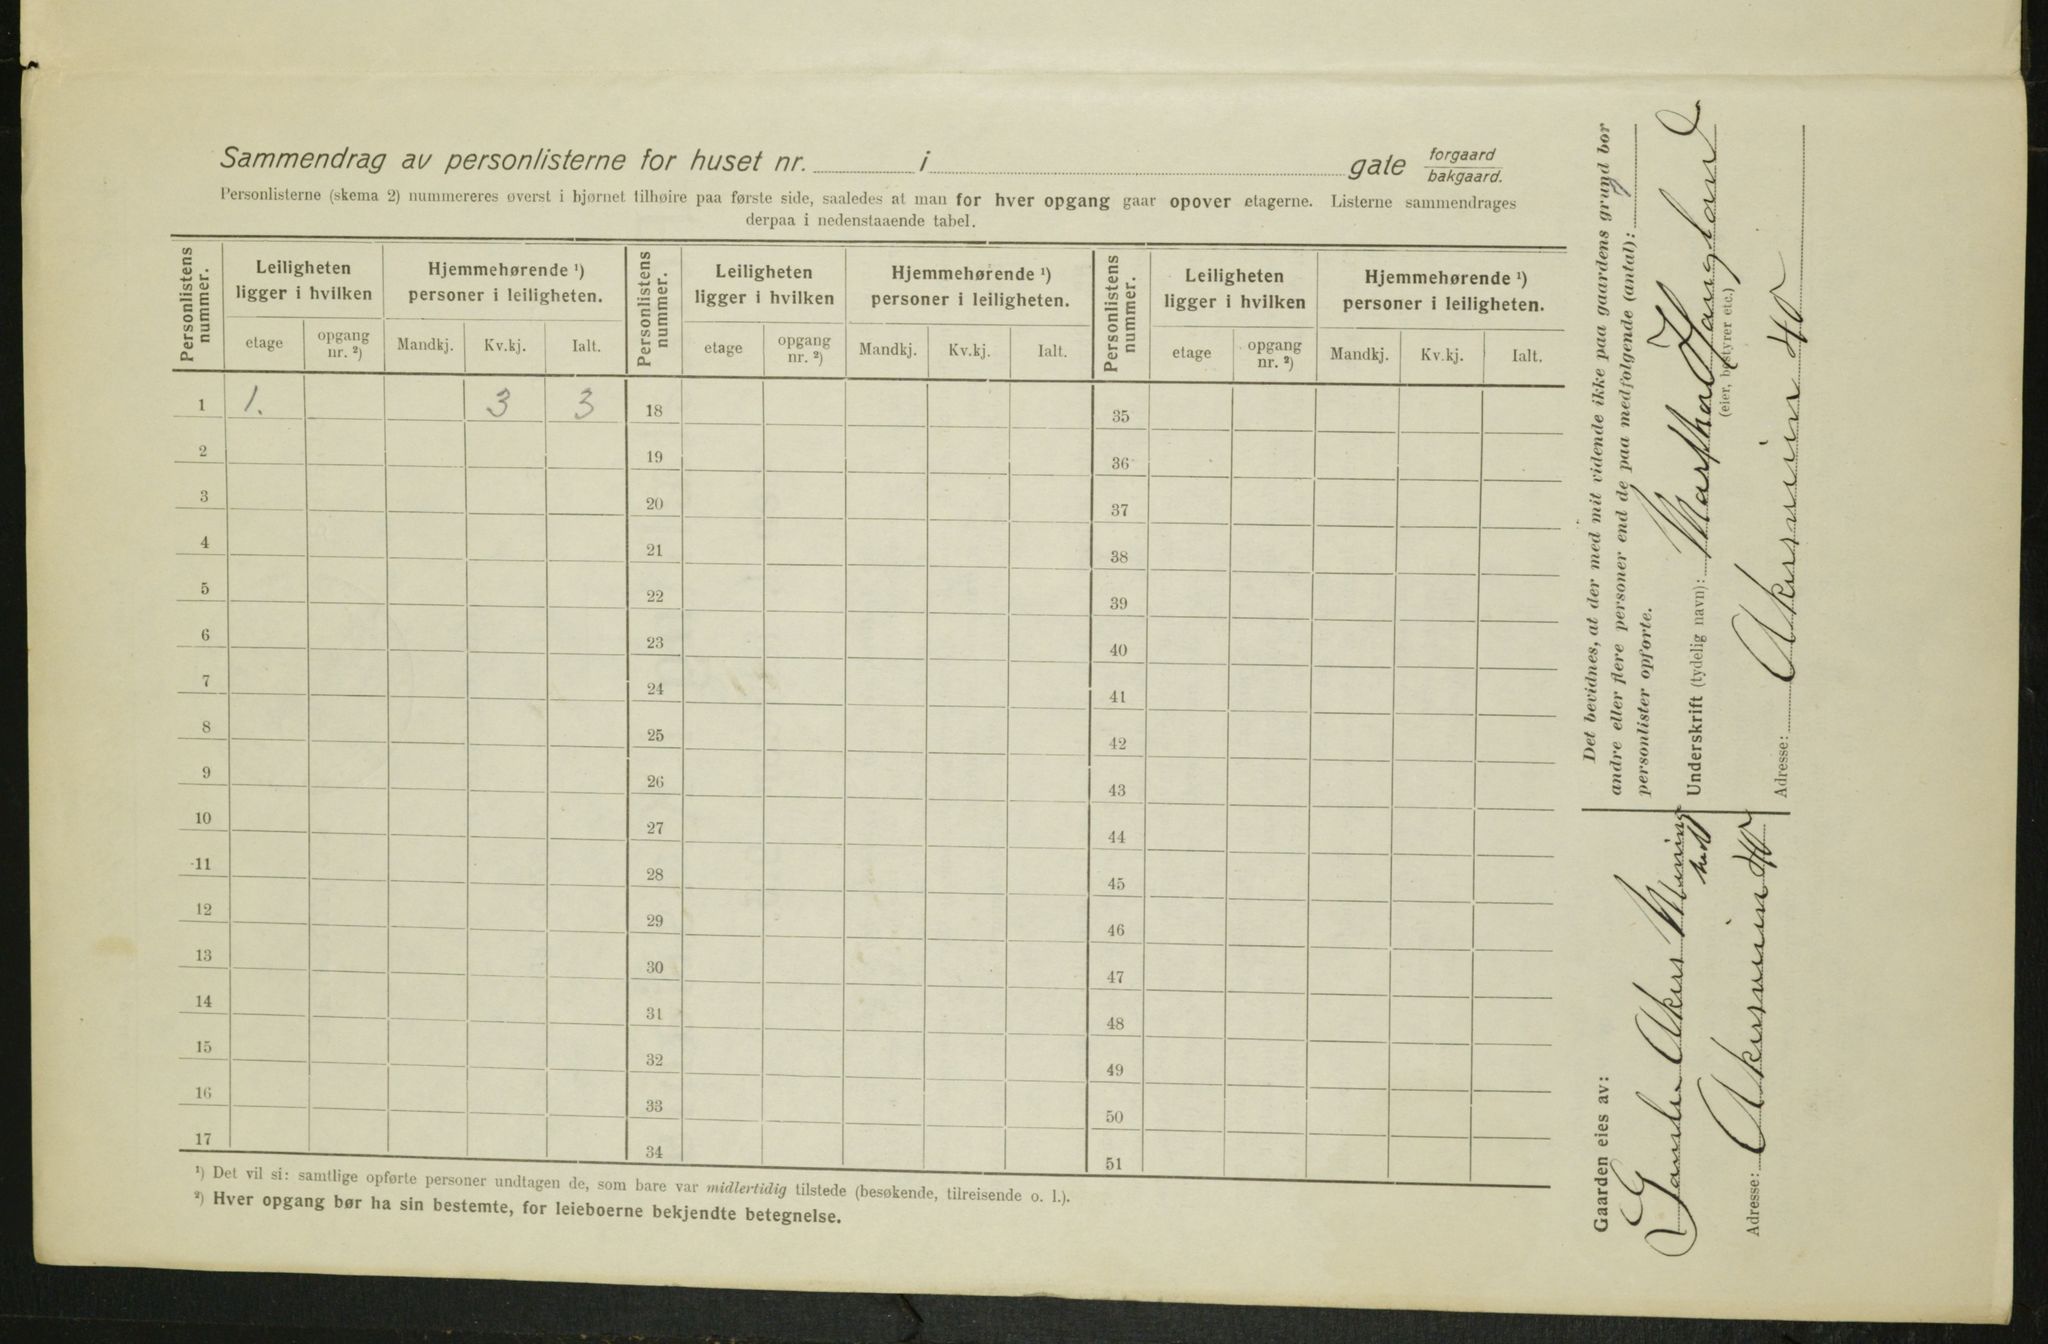 Sammendrag av personlisterne for huset nr. i gate forgaard
bakgaard.
Personlisterne (skema 2) nummereres øverst i hjørnet tilhøire paa første side, saaledes at man for hver opgang gaar opover etagerne. Listerne sammendrages
derpaa i nedenstaaende tabel.
Personlistens nummer. Leiligheten ligger i hvilken Hjemmehørende ¹) personer i leiligheten. Personlistens nummer. Leiligheten ligger i hvilken Hjemmehørende ¹) personer i leiligheten. Personlistens nummer. Leiligheten ligger i hvilken Hjemmehørende ¹) personer i leiligheten.
etage opgang nr. ²) Mandkj. Kv.kj. Ialt. etage opgang nr. ²) Mandkj. Kv.kj. Ialt. etage opgang nr. ²) Mandkj. Kv.kj. Ialt.
1 1. 3 3 18 35
2 19 36
3 20 37
4 21 38
5 22 39
6 23 40
7 24 41
8 25 42
9 26 43
10 27 44
11 28 45
12 29 46
13 30 47
14 31 48
15 32 49
16 33 50
17 34 51
¹) Det vil si: samtlige opførte personer undtagen de, som bare var midlertidig tilstede (besøkende, tilreisende o. l.).
²) Hver opgang bør ha sin bestemte, for leieboerne bekjendte betegnelse.
Gaarden eies av:
Gamle Akers
Adresse: Akersveien 40
Det bevidnes, at der med mit vidende ikke paa gaardens grund bor
andre eller flere personer end de paa medfølgende (antal):
personlister opførte.
Underskrift (tydelig navn): Martha Haugland
(eier, bestyrer etc.)
Adresse: Akersveien 40